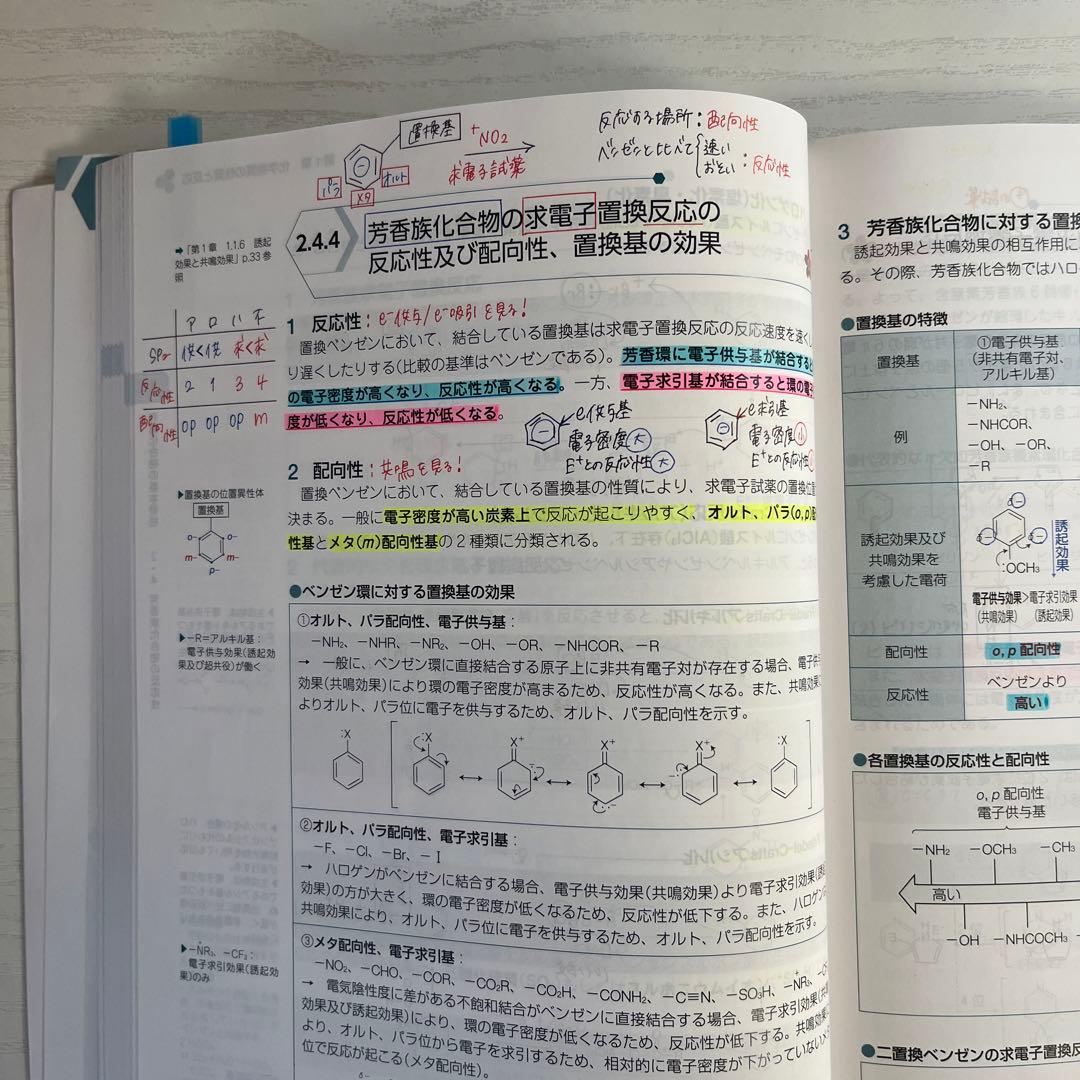 置換基
+NO2
求電子試薬
パラ
メタ
オルト
反応する場所：配向性
ベンゼンと比べて{速い おそい：反応性
2.4.4
芳香族化合物の求電子置換反応の
反応性及び配向性、置換基の効果
➡「第1章 1.1.6 誘起
効果と共鳴効果」p.33参
照
ア ロ ハ ニ
SP2 供<供 求<求
反応性 2 1 3 4
配向性 op op op m
1 反応性：e⁻供与/e⁻吸引を見る！
置換ベンゼンにおいて、結合している置換基は求電子置換反応の反応速度を速く
り遅くしたりする(比較の基準はベンゼンである)。芳香環に電子供与基が結合すると
の電子密度が高くなり、反応性が高くなる。一方、電子求引基が結合すると環の電子
度が低くなり、反応性が低くなる。
e供与基
電子密度(大)
E⁺との反応性(大)
e求引基
電子密度(小)
E⁺との反応性
2 配向性：共鳴を見る！
置換ベンゼンにおいて、結合している置換基の性質により、求電子試薬の置換位置
決まる。一般に電子密度が高い炭素上で反応が起こりやすく、オルト、パラ(o, p)
性基とメタ(m)配向性基の2種類に分類される。
▶置換基の位置異性体
置換基
o- o-
m- m-
p-
●ベンゼン環に対する置換基の効果
①オルト、パラ配向性、電子供与基：
−NH₂、−NHR、−NR₂、−OH、−OR、−NHCOR、−R
→ 一般に、ベンゼン環に直接結合する原子上に非共有電子対が存在する場合、電子供
効果(共鳴効果)により環の電子密度が高まるため、反応性が高くなる。また、共鳴効果
よりオルト、パラ位に電子を供与するため、オルト、パラ配向性を示す。
▶−R＝アルキル基：
電子供与効果(誘起効
果及び超共役)が働く
:X :X X⁺ X⁺ X⁺ :X
②オルト、パラ配向性、電子求引基：
−F、−Cl、−Br、−I
→ ハロゲンがベンゼンに結合する場合、電子供与効果(共鳴効果)より電子求引効果(誘
効果)の方が大きく、環の電子密度が低くなるため、反応性が低下する。また、ハロゲン
共鳴効果により、オルト、パラ位に電子を供与するため、オルト、パラ配向性を示す。
▶−N⁺R₃、−CF₃：
電子求引効果(誘起効
果)のみ
③メタ配向性、電子求引基：
−NO₂、−CHO、−COR、−CO₂R、−CO₂H、−CONH₂、−C≡N、−SO₃H、−N⁺R₃、
→ 電気陰性度に差がある不飽和結合がベンゼンに直接結合する場合、電子求引効果(共
効果及び誘起効果)により、環の電子密度が低くなるため、反応性が低下する。共鳴効果
より、オルト、パラ位から電子を求引するため、相対的に電子密度が下がっていないメ
位で反応が起こる(メタ配向性)。
3 芳香族化合物に対する置換
誘起効果と共鳴効果の相互作用に
る。その際、芳香族化合物ではハロ
●置換基の特徴
置換基
①電子供与基
(非共有電子対、
アルキル基)
例
−NH₂、
−NHCOR、
−OH、−OR、
−R
誘起効果及び
共鳴効果を
考慮した電荷
:OCH₃
誘起効果
電子供与効果＞電子求引効果
(共鳴効果) (誘起効果)
配向性 o, p 配向性
反応性 ベンゼンより
高い
●各置換基の反応性と配向性
o, p 配向性
電子供与基
−NH₂ −OCH₃ −CH₃
高い
−OH −NHCOCH₃
●二置換ベンゼンの求電子置換反